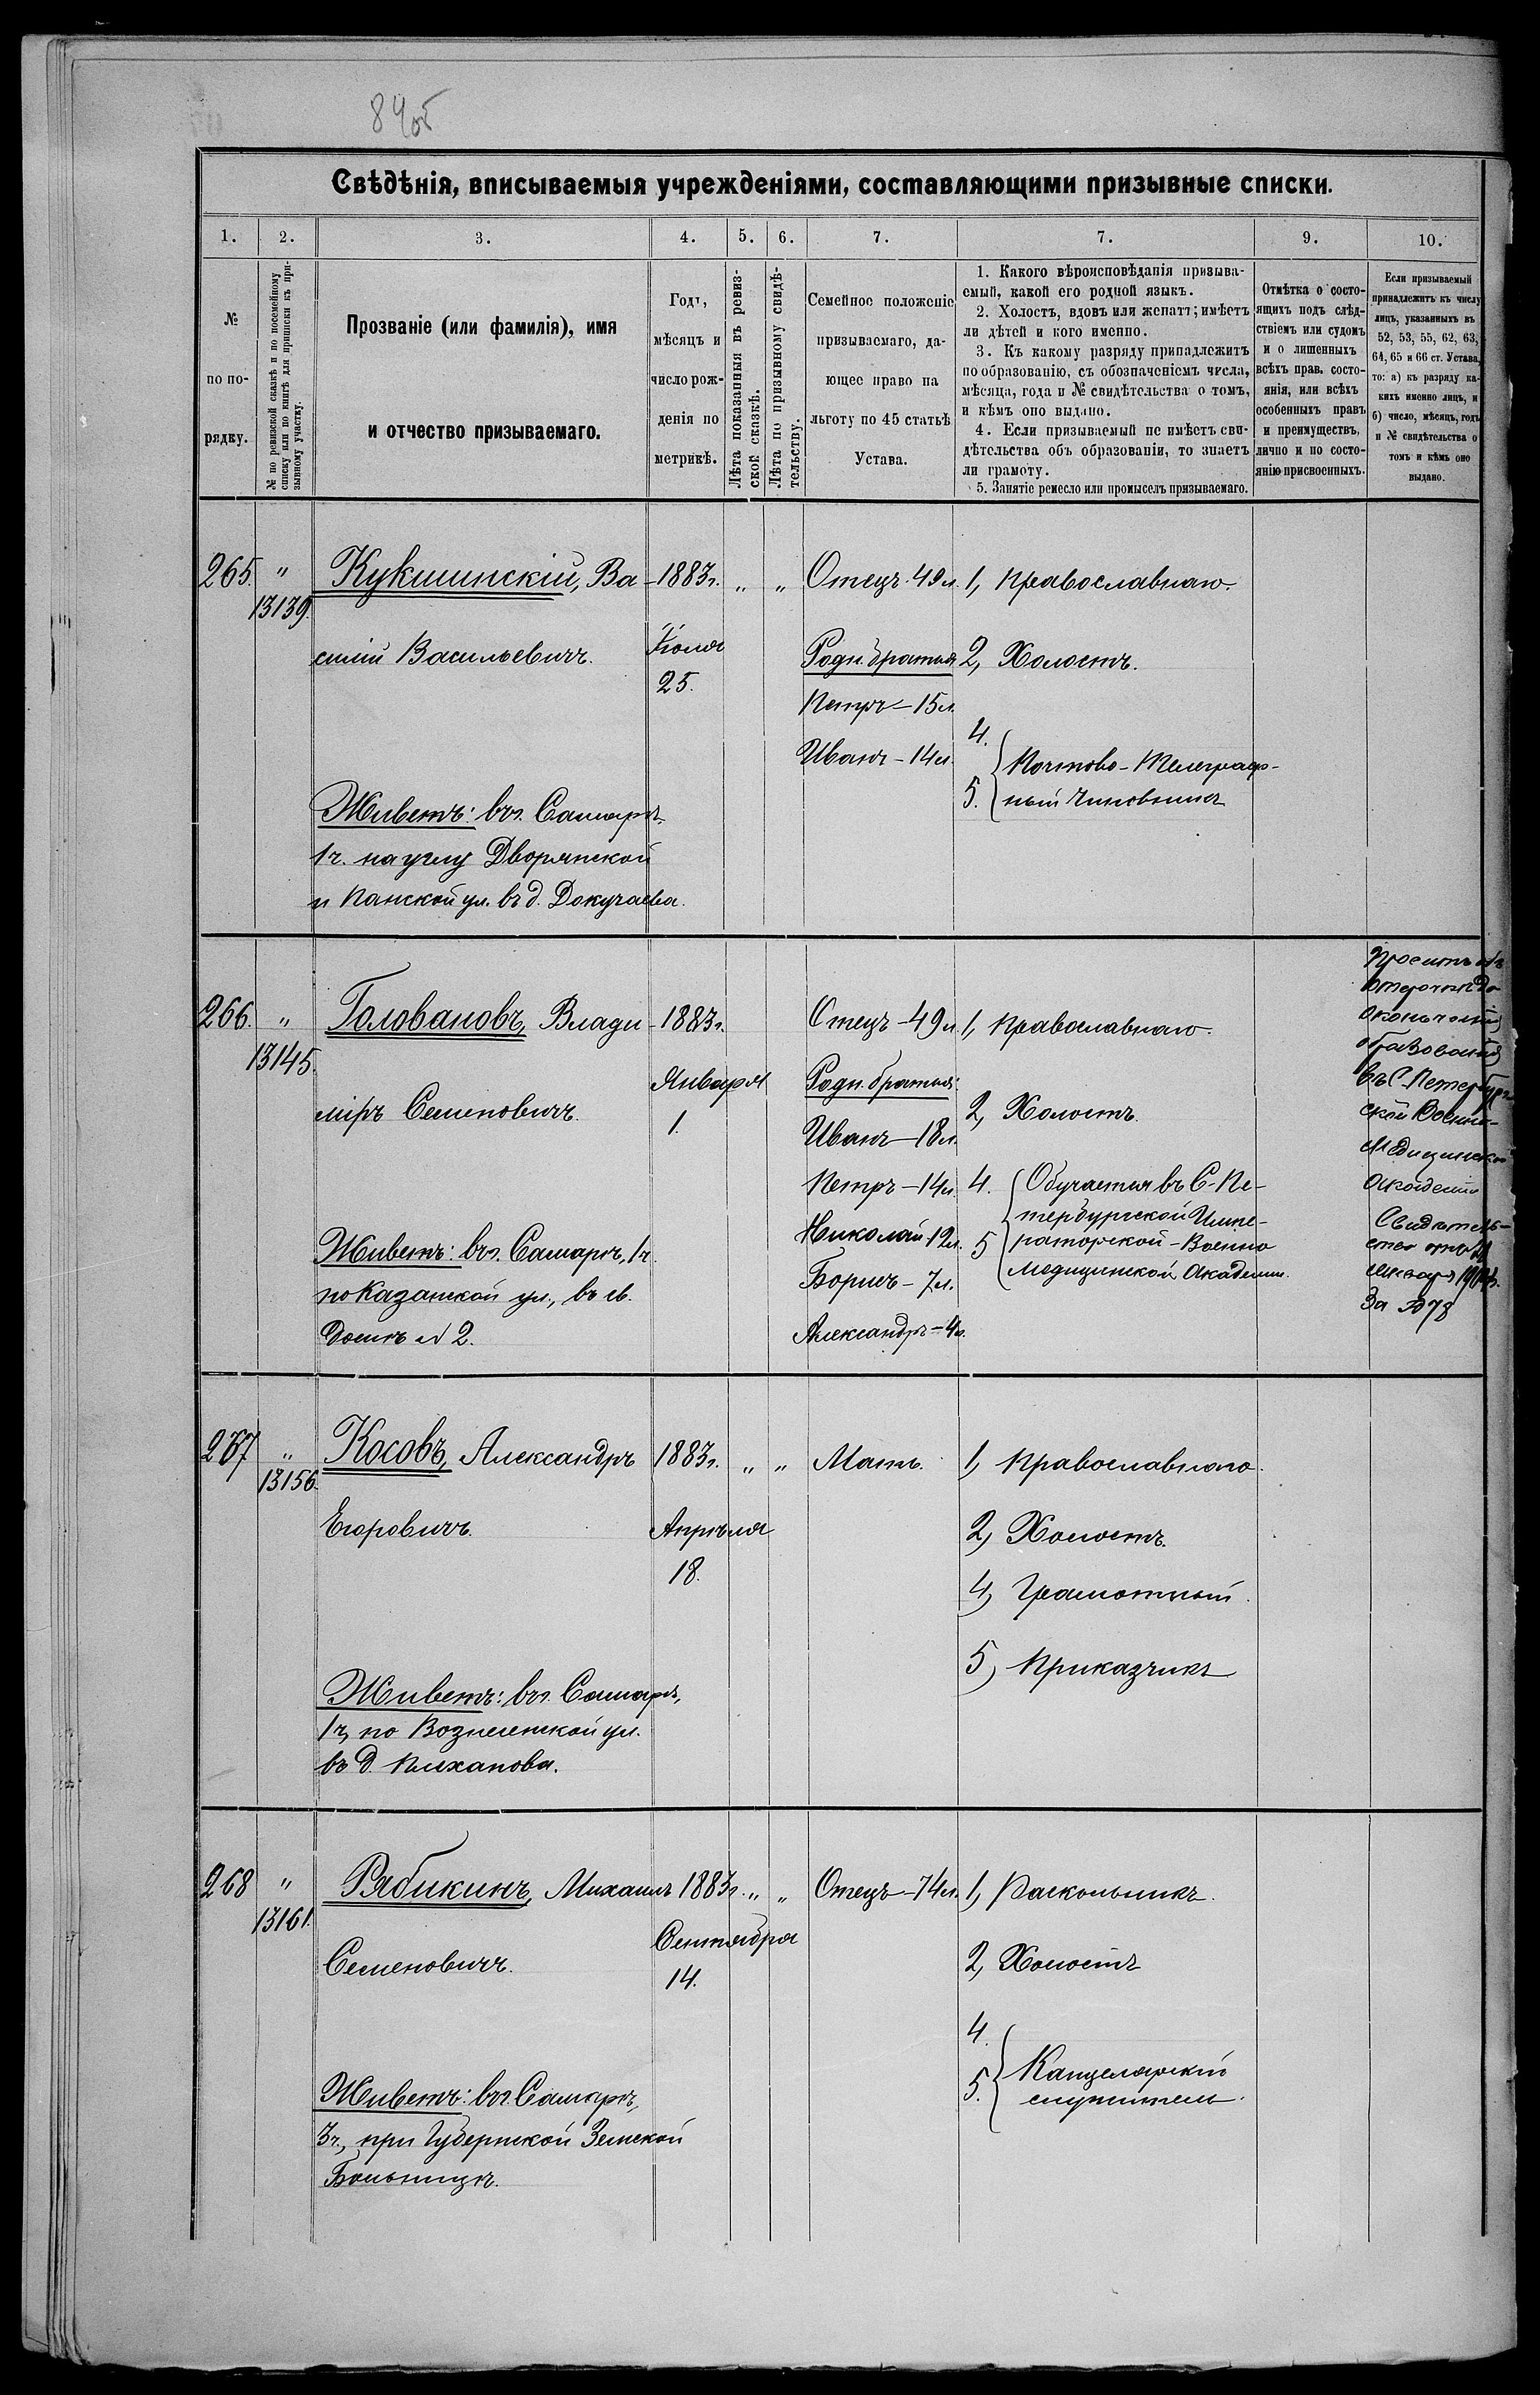 84об
Свѣдѣнія, вписываемыя учрежденіями, составляющими призывные списки.
1. 2. 3. 4. 5. 6. 7. 7. 9. 10.
№
по по-
рядку.
№ по ревизской сказкѣ и по посемейному
списку или по книгѣ для приписки къ при-
зывному участку.
Прозваніе (или фамилія), имя
и отчество призываемаго.
Годъ,
мѣсяцъ и
число рож-
денія по
метрикѣ.
Лѣта показанныя въ ревиз-
ской сказкѣ.
Лѣта по призывному свидѣ-
тельству.
Семейное положеніе
призываемаго, да-
ющее право на
льготу по 45 статьѣ
Устава.
1. Какого вѣроисповѣданія призыва-
емый, какой его родной языкъ.
2. Холостъ, вдовъ или женатъ; имѣетъ
ли дѣтей и кого именно.
3. Къ какому разряду принадлежитъ
по образованію, съ обозначеніемъ числа,
мѣсяца, года и № свидѣтельства о томъ,
и кѣмъ оно выдано.
4. Если призываемый не имѣетъ сви-
дѣтельства объ образованіи, то знаетъ
ли грамоту.
5. Занятіе ремесло или промыселъ призываемаго.
Отмѣтка о состо-
ящихъ подъ слѣд-
ствіемъ или судомъ
и о лишенныхъ
всѣхъ прав. состо-
янія, или всѣхъ
особенныхъ правъ
и преимуществъ,
лично и по состо-
янію присвоенныхъ.
Если призываемый
принадлежитъ къ числу
лицъ, указанныхъ въ
52, 53, 55, 62, 63,
64, 65 и 66 ст. Устава,
то: а) къ разряду ка-
кихъ именно лицъ, и
б) число, мѣсяцъ, годъ
и № свидѣтельства о
томъ и кѣмъ оно
выдано.
265. "
13139.
Кукшинскій, Ва-
силій Васильевичъ.
Живетъ: въ г. Самарѣ,
1 ч. на углу Дворянской
и Панской ул. въ д. Докучаева.
1883 г.
Іюля
25.
" "
Отецъ 49 л.
Родн. братья
Петръ - 15 л.
Иванъ - 14 л.
1, Православнаго.
2, Холостъ.
4.
5. Почтово-Телеграф-
ный чиновникъ
266. "
13145.
Головановъ, Влади-
міръ Семеновичъ.
Живетъ: въ г. Самарѣ, 1 ч.
по Казанской ул., въ св.
домѣ № 2.
1883 г.
Января
1.
Отецъ - 49 л.
Родн. братья:
Иванъ - 18 л.
Петръ - 14 л.
Николай - 12 л.
Борисъ - 7 л.
Александръ - 4 л.
1, Православнаго.
2, Холостъ.
4. Обучается въ С-Пе-
тербургской Импе-
5 раторской - Военно
Медицинской Академіи.
Проситъ объ
отсрочкѣ до
окончанія
образованія
въ С.-Петербург-
ской Военно-
Медицинской
Академіи
Свидѣтель-
ство
января 1904 г.
За № 78
267 "
13156.
Косовъ, Александръ
Егоровичъ.
Живетъ: въ г. Самарѣ,
1 ч, по Вознесенской ул.
въ д. Плеханова.
1883 г.
Апрѣля
18.
" "
Мать.
1, Православнаго.
2, Холостъ.
4, Грамотный.
5, Приказчикъ
268 "
13161.
Рябикинъ, Михаилъ
Семеновичъ.
Живетъ: въ г. Самарѣ,
3 ч., при Губернской Земской
Больницѣ.
1883 г.
Сентября
14.
" "
Отецъ - 74 л.
1, Раскольникъ.
2, Холостъ
4.
5. Канцелярскій
служитель.